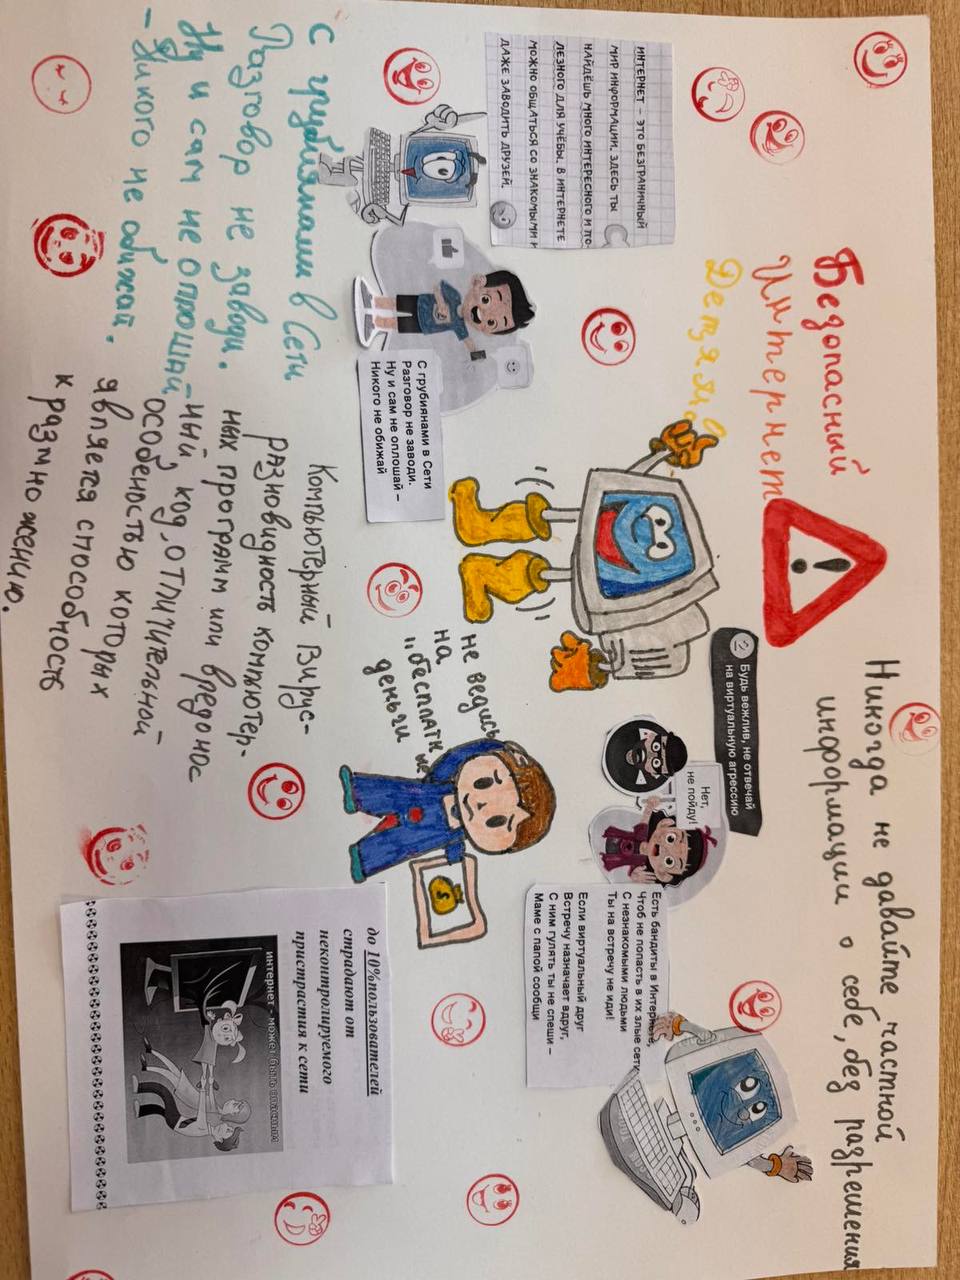 Безопасный
Интернет
Детям!
Никогда не давайте частной
информации о себе, без разрешения
ИНТЕРНЕТ – ЭТО БЕЗГРАНИЧНЫЙ
МИР ИНФОРМАЦИИ. ЗДЕСЬ ТЫ
НАЙДЁШЬ МНОГО ИНТЕРЕСНОГО И ПО-
ЛЕЗНОГО ДЛЯ УЧЁБЫ. В ИНТЕРНЕТЕ
МОЖНО ОБЩАТЬСЯ СО ЗНАКОМЫМИ И
ДАЖЕ ЗАВОДИТЬ ДРУЗЕЙ.
2 Будь вежлив, не отвечай
на виртуальную агрессию
Нет,
не пойду!
Есть бандиты в Интернете,
Чтоб не попасть в их злые сети
С незнакомыми людьми
Ты на встречу не иди!
Если виртуальный друг
Встречу назначает вдруг,
С ним гулять ты не спеши –
Маме с папой сообщи
С грубиянами в Сети
Разговор не заводи.
Ну и сам не оплошай –
Никого не обижай
не ведись
на
"бесплатные
деньги
С грубиянами в Сети
Разговор не заводи.
Ну и сам не оплошай
- Никого не обижай.
Компьютерный Вирус-
разновидность компьютер-
ных программ или вредонос
ный код, отличительной
особенностью которых
является способность
к размножению.
до 10%пользователей
страдают от
неконтролируемого
пристрастия к сети
интернет - может быть опасным